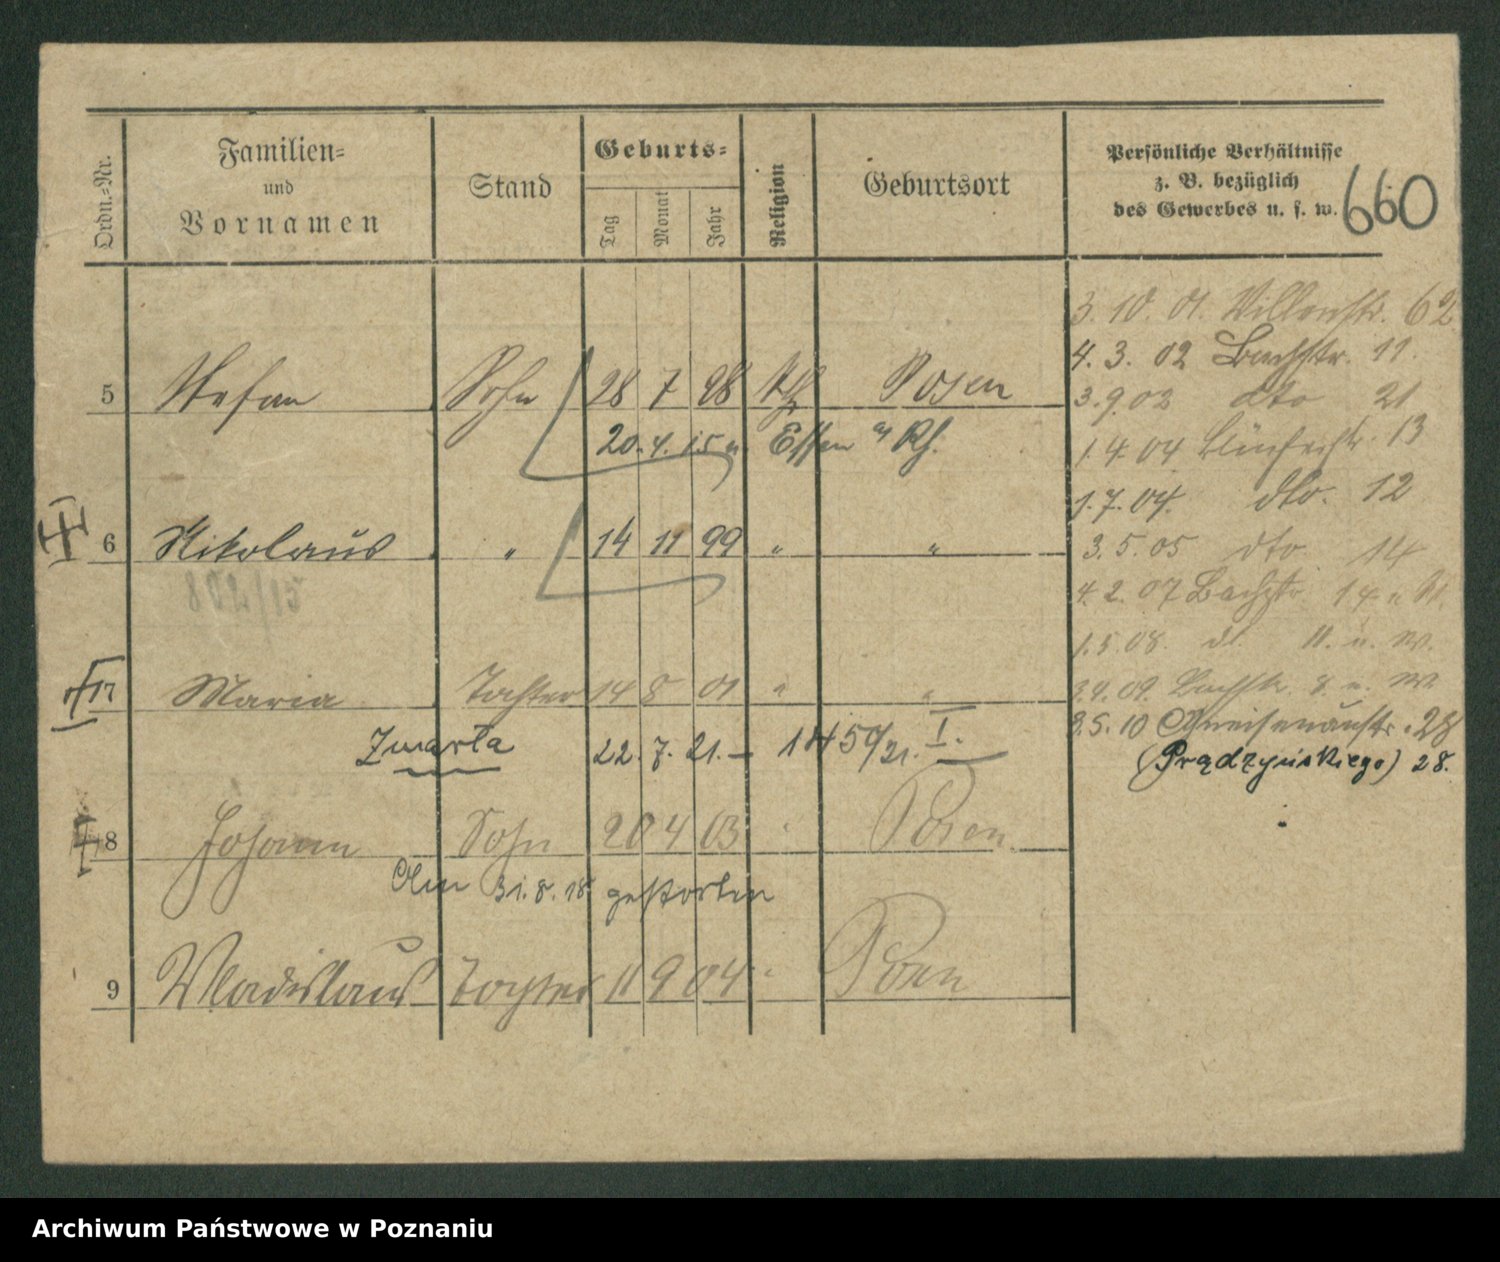 Ordn.-Nr.
Familien-
und
Vornamen
Stand
Geburts-
Tag
Monat
Jahr
Religion
Geburtsort
Persönliche Verhältnisse
z. B. bezüglich
des Gewerbes u. s. w.
660
5 Stefan Sohn 28 7 98 kth Posen
20.4.15 n. Essen a/ Rh.
6 Nikolaus " 14 11 99 " "
7 Maria Tochter 14 8 01 " "
Zmarła 22.7.21. – 1450/21. I.
8 Johann Sohn 20 4 03 Posen
Am 31.8.18 gestorben
9 Wladislaus Tochter 11 9 04 Posen
3.10.01. 62
4.3.02 Bachstr. 11.
3.9.02 dto 21
1.4.04 13
1.7.04. dto. 12
3.5.05 dto. 14
4.2.07 Bachstr. 14
1.5.08.
09. Bachstr.
3.5.10 Gneisenaustr. 28
(Prądzyńskiego) 28.
Archiwum Państwowe w Poznaniu